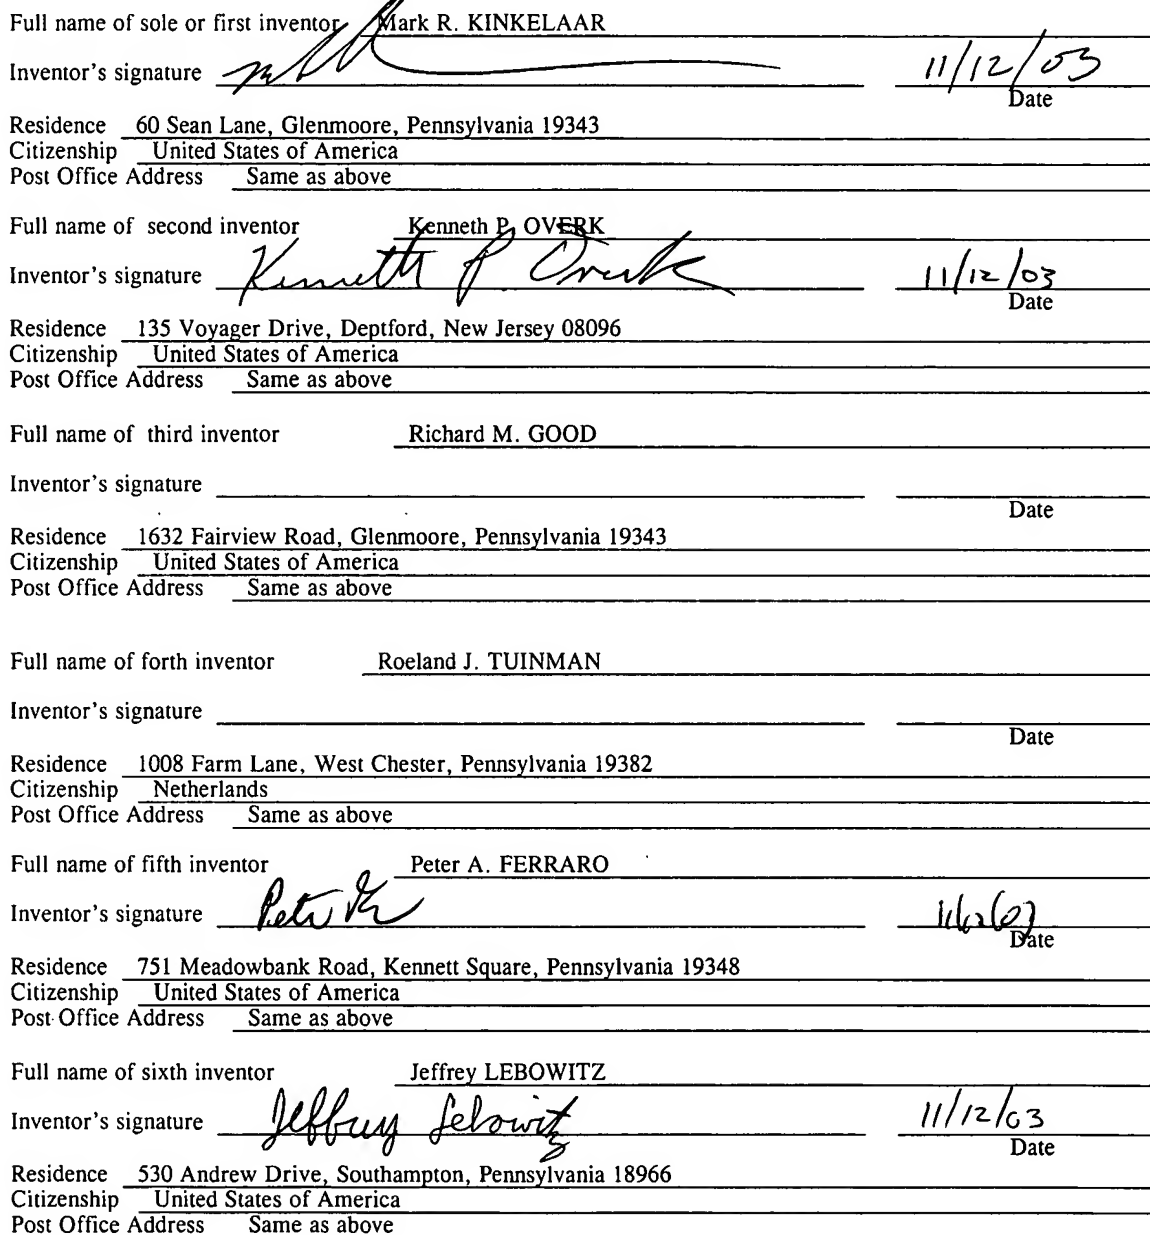 Full name of sole or first inventor Mark R. KINKELAAR
Inventor's signature 11/12/03
Date
Residence 60 Sean Lane, Glenmoore, Pennsylvania 19343
Citizenship United States of America
Post Office Address Same as above
Full name of second inventor Kenneth P. OVERK
Inventor's signature Kenneth P. Overk 11/12/03
Date
Residence 135 Voyager Drive, Deptford, New Jersey 08096
Citizenship United States of America
Post Office Address Same as above
Full name of third inventor Richard M. GOOD
Inventor's signature
Date
Residence 1632 Fairview Road, Glenmoore, Pennsylvania 19343
Citizenship United States of America
Post Office Address Same as above
Full name of forth inventor Roeland J. TUINMAN
Inventor's signature
Date
Residence 1008 Farm Lane, West Chester, Pennsylvania 19382
Citizenship Netherlands
Post Office Address Same as above
Full name of fifth inventor Peter A. FERRARO
Inventor's signature Peter
Date
Residence 751 Meadowbank Road, Kennett Square, Pennsylvania 19348
Citizenship United States of America
Post Office Address Same as above
Full name of sixth inventor Jeffrey LEBOWITZ
Inventor's signature Jeffrey Lebowitz 11/12/03
Date
Residence 530 Andrew Drive, Southampton, Pennsylvania 18966
Citizenship United States of America
Post Office Address Same as above